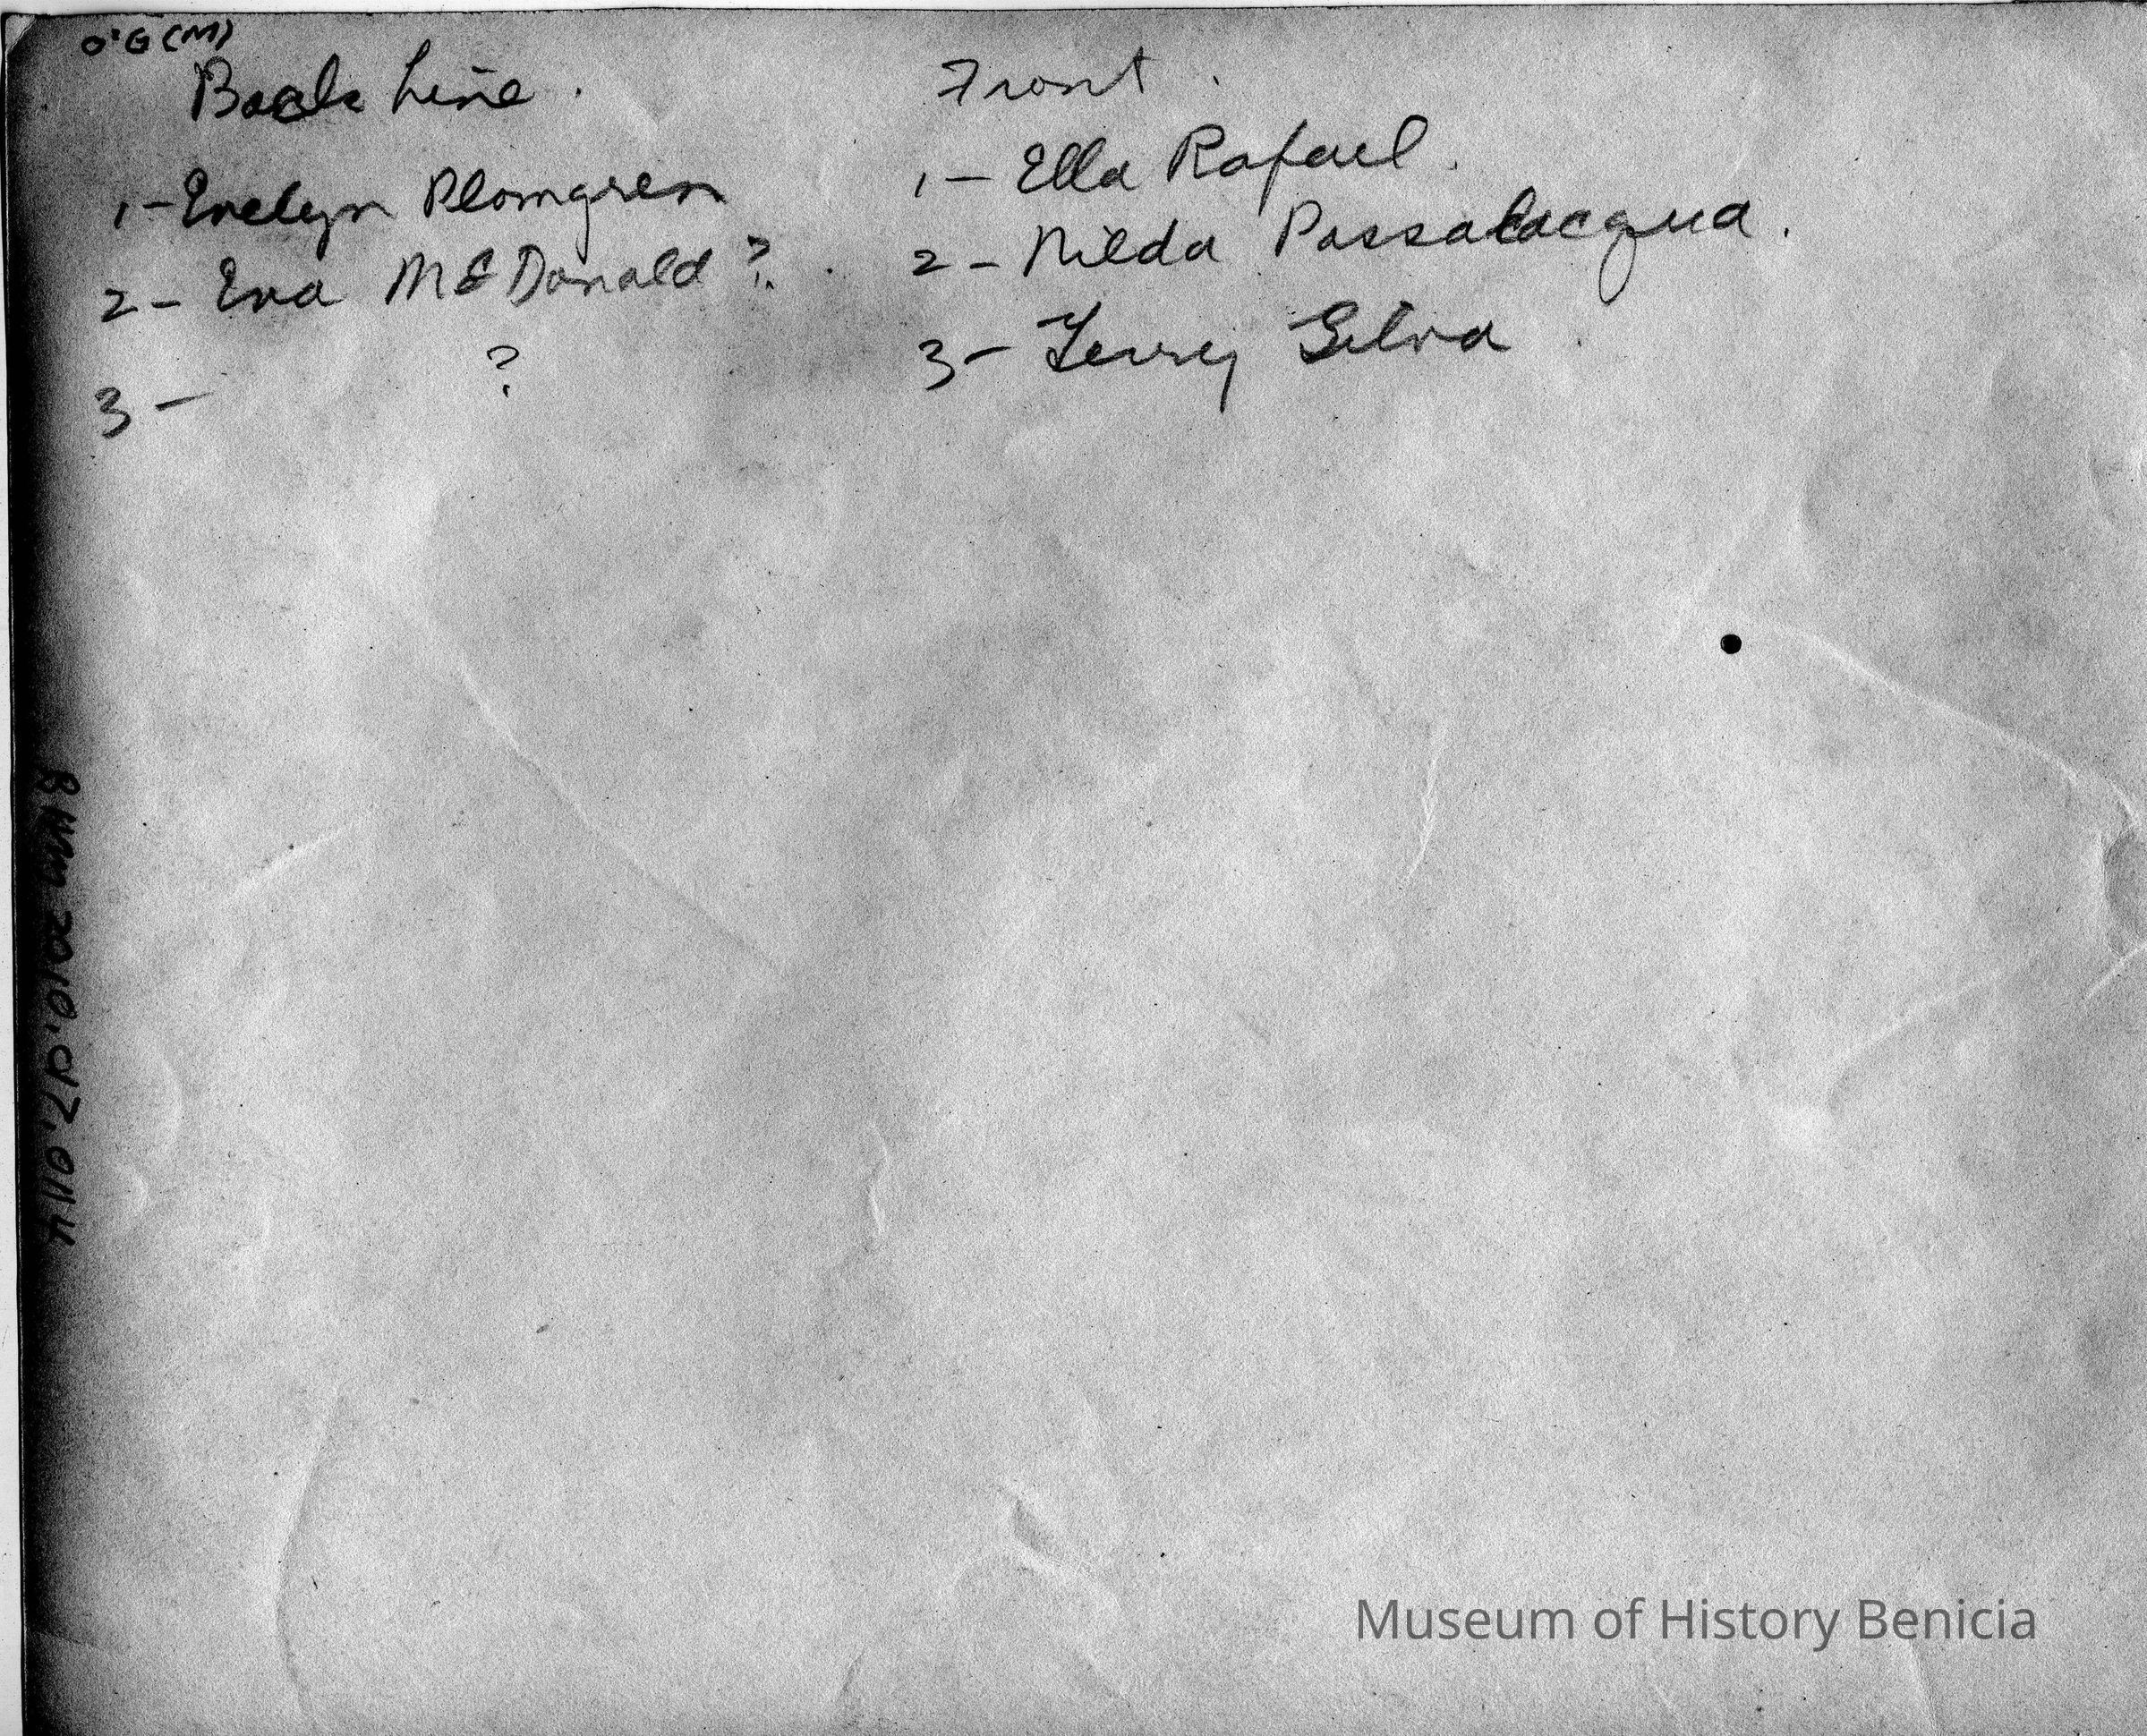 O'G (M)
Back Line.
1- Evelyn Plomgren
2- Eva McDonald?
3- ?
Front.
1- Ella Rafael.
2- Nilda Passalacqua.
3- Terry Silva.
BHM 2010.a7.0114
Museum of History Benicia